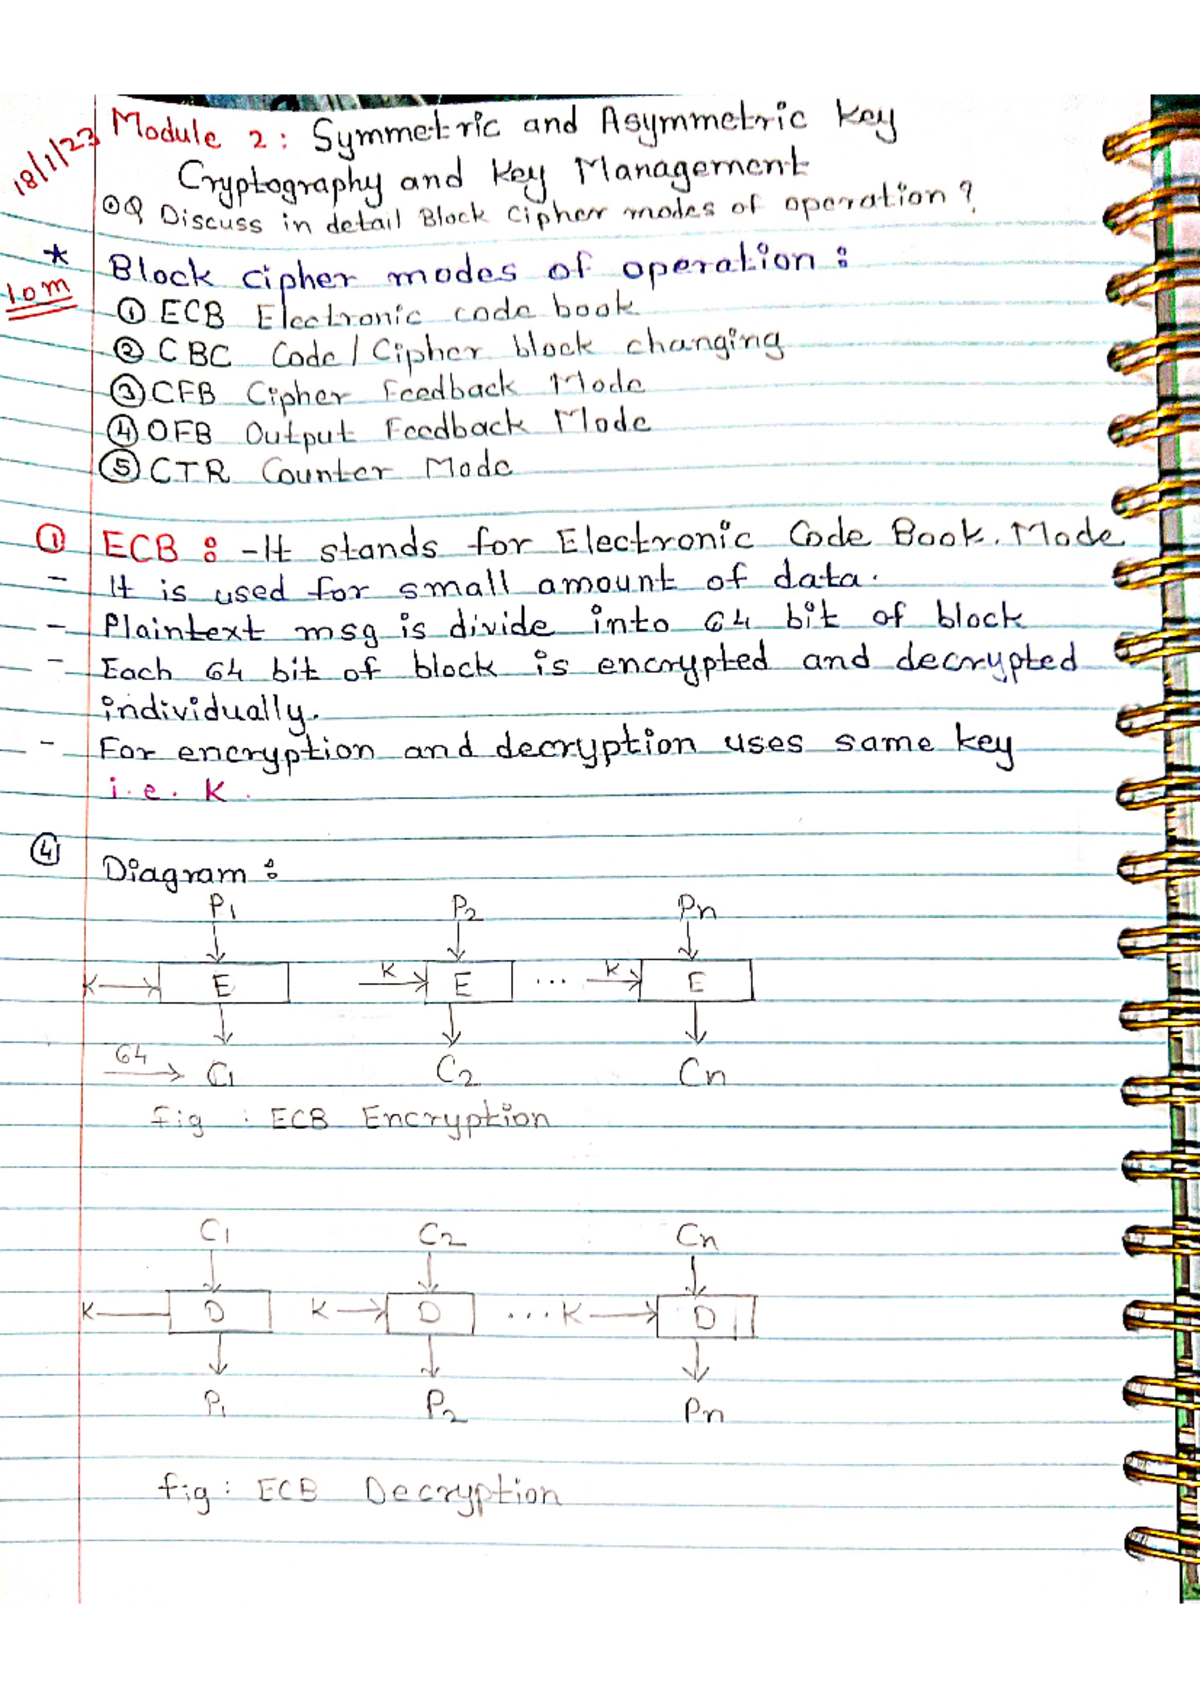 18/1/23 Module 2 : Symmetric and Asymmetric Key
Cryptography and Key Management
Q Discuss in detail Block Cipher modes of operation ?
* Block cipher modes of operation :
10m
① ECB Electronic code book
② CBC Code / Cipher block changing
③ CFB Cipher Feedback Mode
④ OFB Output Feedback Mode
⑤ CTR Counter Mode
① ECB : - It stands for Electronic Code Book. Mode
- It is used for small amount of data.
- Plaintext msg is divide into 64 bit of block
- Each 64 bit of block is encrypted and decrypted
individually.
- For encryption and decryption uses same key
i.e. K.
④ Diagram :
P1 P2 Pn
K E K E ... K E
64 C1 C2 Cn
fig : ECB Encryption
C1 C2 Cn
K D K D ... K D
P1 P2 Pn
fig : ECB Decryption